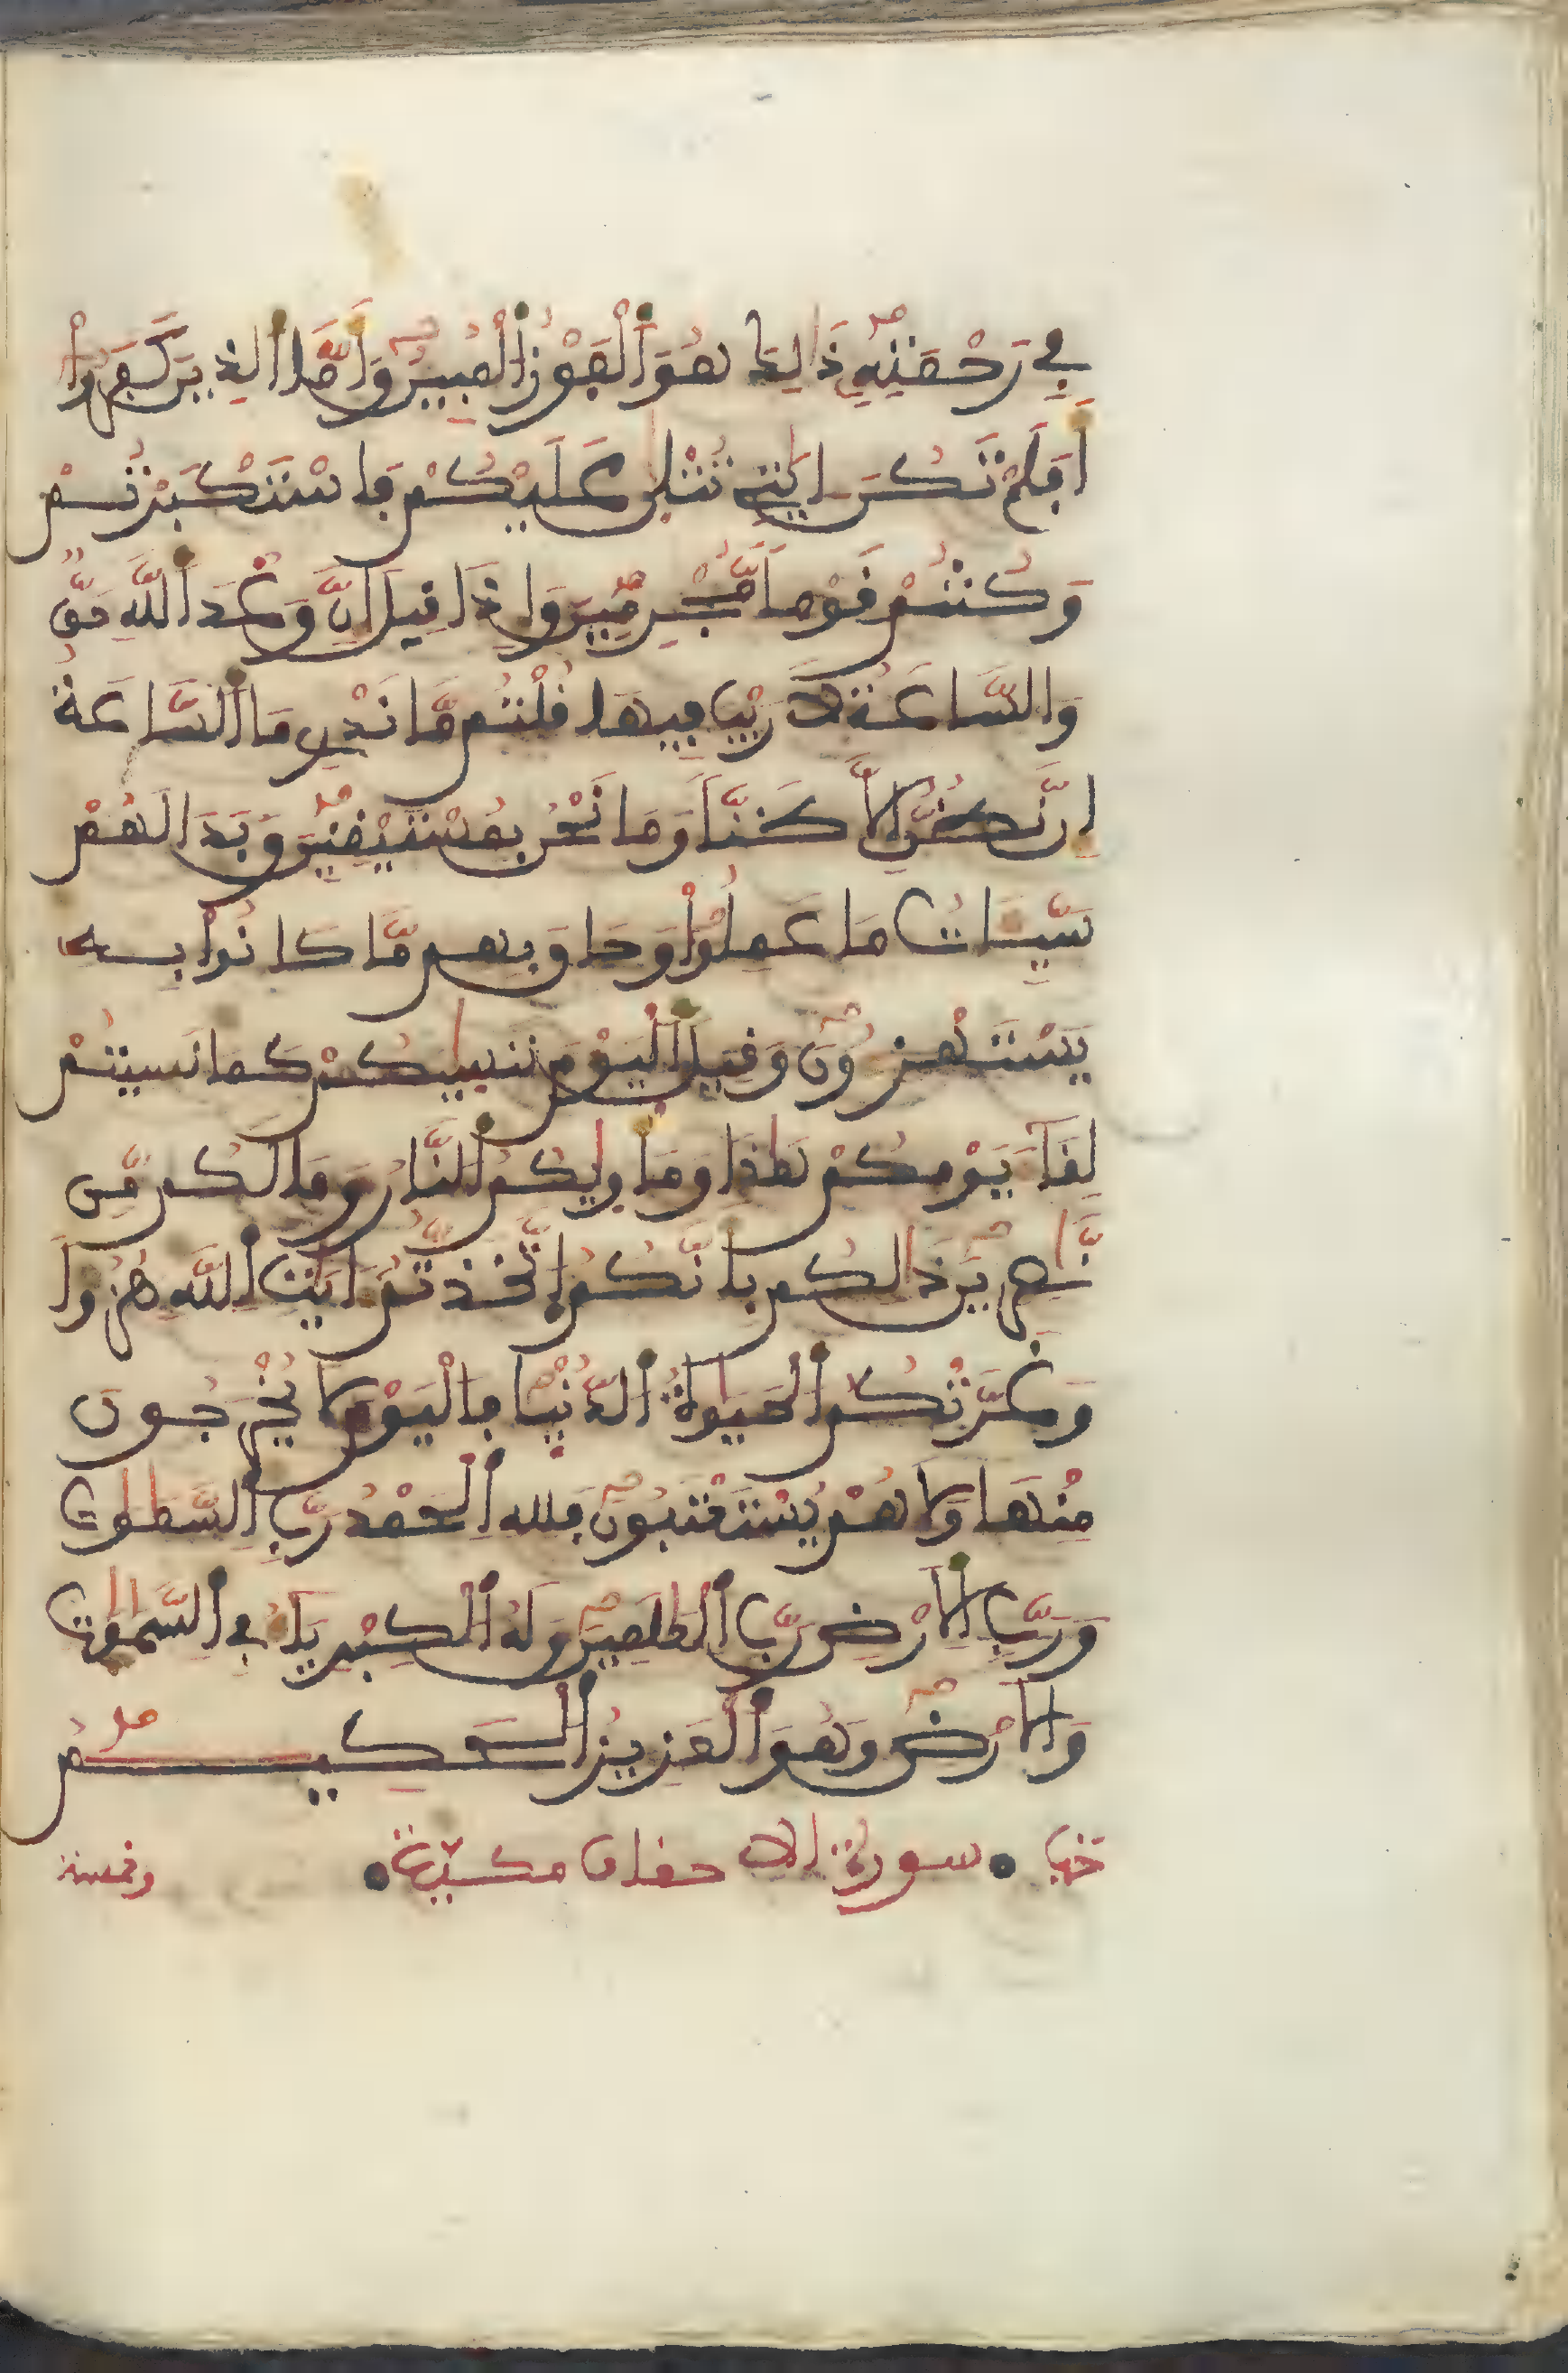 في رَحْمَتِهِ ذَالِكَ هُوَ ٱلْفَوْزُ ٱلْمُبِينُ وَأَمَّا ٱلذِينَ كَفَرُوا
أَفَلَمْ تَكُنَ ايَٰتِے تُتْلَىٰ عَلَيْكُمْ فَاسْتَكْبَرْتُمْ
وَكُنتُمْ قَوْما مُّجْرِمِينَ وَإِذَا قِيلَ إِنَّ وَعْدَ ٱللَّهِ حَقٌّ
وَالسَّاعَةُ لَا رَيْبَ فِيهَا قُلْتُم مَّا نَدْرِے مَا ٱلسَّاعَةُ
إِن نَّظُنُّ إِلَّا ظَنّاً وَمَا نَحْنُ بِمُسْتَيْقِنِينَ وَبَدَا لَهُمْ
سَيِّـَٔاتُ مَا عَمِلُوا وَحَاقَ بِهِم مَّا كَانُوا بِهِ
يَسْتَهْزِءُونَ وَقِيلَ ٱلْيَوْمَ نَنسَيٰكُمْ كَمَا نَسِيتُمْ
لِقَآءَ يَوْمِكُمْ هَٰذَا وَمَأْوَيٰكُمُ ٱلنَّارُ وَمَا لَكُم مِّن
نَّٰصِرِينَ ذَٰلِكُم بِأَنَّكُمُ ٱتَّخَذتُّمُ ءَايَٰتِ ٱللَّهِ هُزُؤاً
وَغَرَّتْكُمُ ٱلْحَيَوٰةُ ٱلدُّنْيَا فَالْيَوْمَ لَا يُخْرَجُونَ
مِنْهَا وَلَا هُمْ يُسْتَعْتَبُونَ فَلِلهِ ٱلْحَمْدُ رَبِّ ٱلسَّمَٰوَٰتِ
وَرَبِّ ٱلْأَرْضِ رَبِّ ٱلْعَٰلَمِينَ وَلَهُ ٱلْكِبْرِيَآءُ فِي ٱلسَّمَٰوَٰتِ
وَالْأَرْضِ وَهُوَ ٱلْعَزِيزُ ٱلْحَكِيمُ
حزب سورة الاحقاف مكية